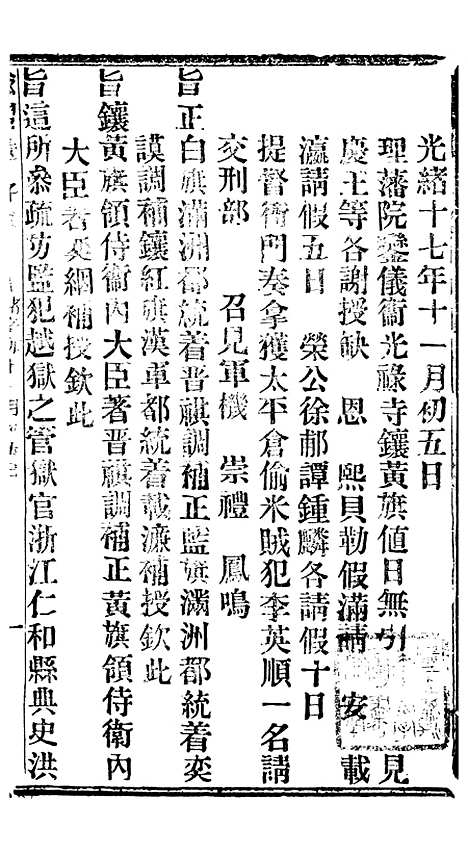 光緒十七年十一月初五日
理藩院鑾儀衛光祿寺鑲黃旗值日無引見
慶王等各謝授缺　恩　熙貝勒假滿請　安　載
瀛請假五日　榮公徐郙譚鍾麟各請假十日
提督衙門奏拿獲太平倉偷米賊犯李英順一名請
交刑部　召見軍機　崇禮　鳳鳴
旨正白旗滿洲都統着晋祺調補正藍旗滿洲都統着奕
謨調補鑲紅旗漢軍都統着載濂補授欽此
旨鑲黃旗領侍衛內大臣著晋祺調補正黃旗領侍衛內
大臣著奕綑補授欽此
旨這所叅疏防監犯越獄之管獄官浙江仁和縣典史洪
一